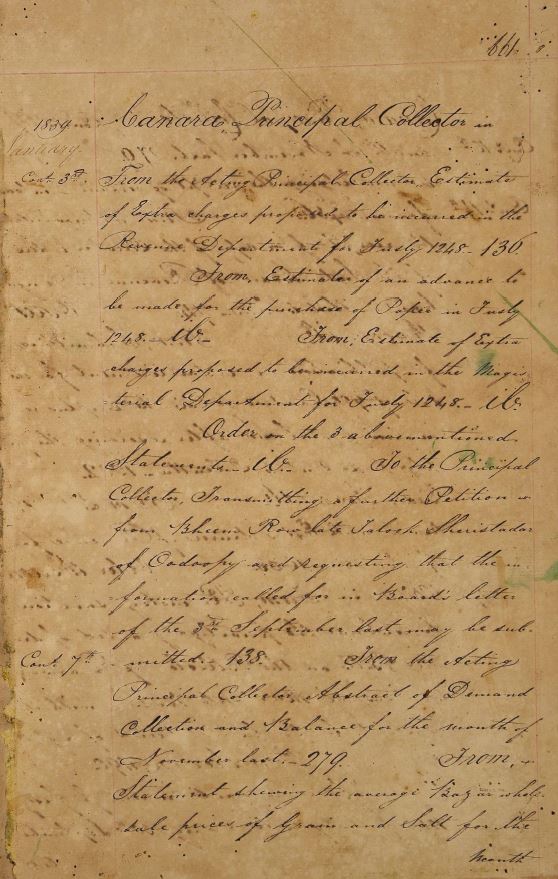 661.
Canara, Principal Collector in
1839
January.
Cont. 3rd. From the Acting Principal Collector, Estimate
of Extra charges proposed to be incurred in the
Revenue Department for Fusly 1248.- 136.
From, Estimates of an advance to
be made for the purchase of Paper in Fusly
1248.- ib.- From, Estimate of Extra
charges proposed to be incurred in the Magis
terial Department for Fusly 1248.- ib.
Order on the 3 abovementioned
Statements.- ib.- To the Principal
Collector, Transmitting a further Petition
from Bheem Row late Talook Sheristadar
of Oodoopy and requesting that the in
formation called for in Board's letter
of the 3rd September last may be sub-
Cont. 7th. mitted. 138. From the Acting
Principal Collector, Abstract of Demand
Collection and Balance for the month of
November last.- 279. From,
Statement shewing the average Bazar whole
sale prices of Grain and Salt for the
month